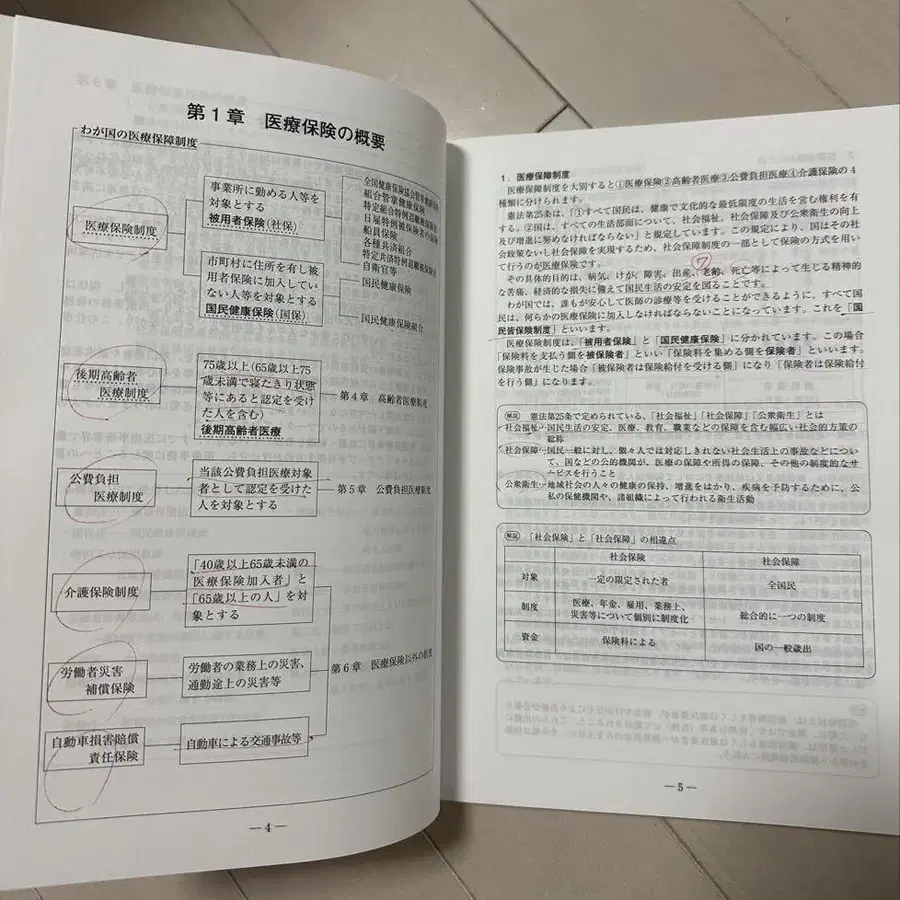 第1章 医療保険の概要
わが国の医療保障制度
医療保険制度
事業所に勤める人等を
対象とする
被用者保険(社保)
全国健康保険協会管掌健康保険
組合管掌健康保険
特定組合特例退職被保険者
日雇特例被保険者の保険
船員保険
各種共済組合
特定共済特例退職被保険者
自衛官等
市町村に住所を有し被
用者保険に加入してい
ない人等を対象とする
国民健康保険(国保)
国民健康保険
国民健康保険組合
後期高齢者
医療制度
75歳以上(65歳以上75
歳未満で寝たきり状態
等にあると認定を受け
た人を含む)
後期高齢者医療
第4章 高齢者医療制度
公費負担
医療制度
当該公費負担医療対象
者として認定を受けた
人を対象とする
第5章 公費負担医療制度
介護保険制度
「40歳以上65歳未満の
医療保険加入者」と
「65歳以上の人」を対
象とする
労働者災害
補償保険
労働者の業務上の災害、
通勤途上の災害等
第6章 医療保険以外の制度
自動車損害賠償
責任保険
自動車による交通事故等
―4―
1.医療保障制度
医療保障制度を大別すると①医療保険②高齢者医療③公費負担医療④介護保険の4
種類に分けられます。
憲法第25条は、「①すべて国民は、健康で文化的な最低限度の生活を営む権利を有
する。②国は、すべての生活部面について、社会福祉、社会保障及び公衆衛生の向上
及び増進に努めなければならない」と規定しています。この規定により、国はその社
会政策ないし社会保障を実現するため、社会保障制度の一部として保険の方式を用い
て行うのが医療保険です。
⑦
その具体的目的は、病気、けが、障害、出産、老齢、死亡等によって生じる精神的
な苦痛、経済的な損失に備えて国民生活の安定を図ることです。
わが国では、誰もが安心して医師の診療等を受けることができるように、すべて国
民は、何らかの医療保険に加入しなければならないことになっています。これを「国
民皆保険制度」といいます。
医療保険制度は、「被用者保険」と「国民健康保険」に分かれています。この場合
「保険料を支払う側を被保険者」といい「保険料を集める側を保険者」といいます。
保険事故が生じた場合「被保険者は保険給付を受ける側」になり「保険者は保険給付
を行う側」になります。
解説 憲法第25条で定められている、「社会福祉」「社会保障」「公衆衛生」とは
社会福祉…国民生活の安定、医療、教育、職業などの保障を含む幅広い社会的方策の
総称
社会保障…国民一般に対し、個々人では対応しきれない社会生活上の事故などについ
て、国などの公的機関が、医療の保障や所得の保障、その他の制度的なサ
ービスを行うこと
公衆衛生…地域社会の人々の健康の保持、増進をはかり、疾病を予防するために、公
私の保健機関や、諸組織によって行われる衛生活動
解説 「社会保険」と「社会保障」の相違点
社会保険 社会保障
対象 一定の限定された者 全国民
制度 医療、年金、雇用、業務上、
災害等について個別に制度化 総合的に一つの制度
資金 保険料による 国の一般歳出
―5―